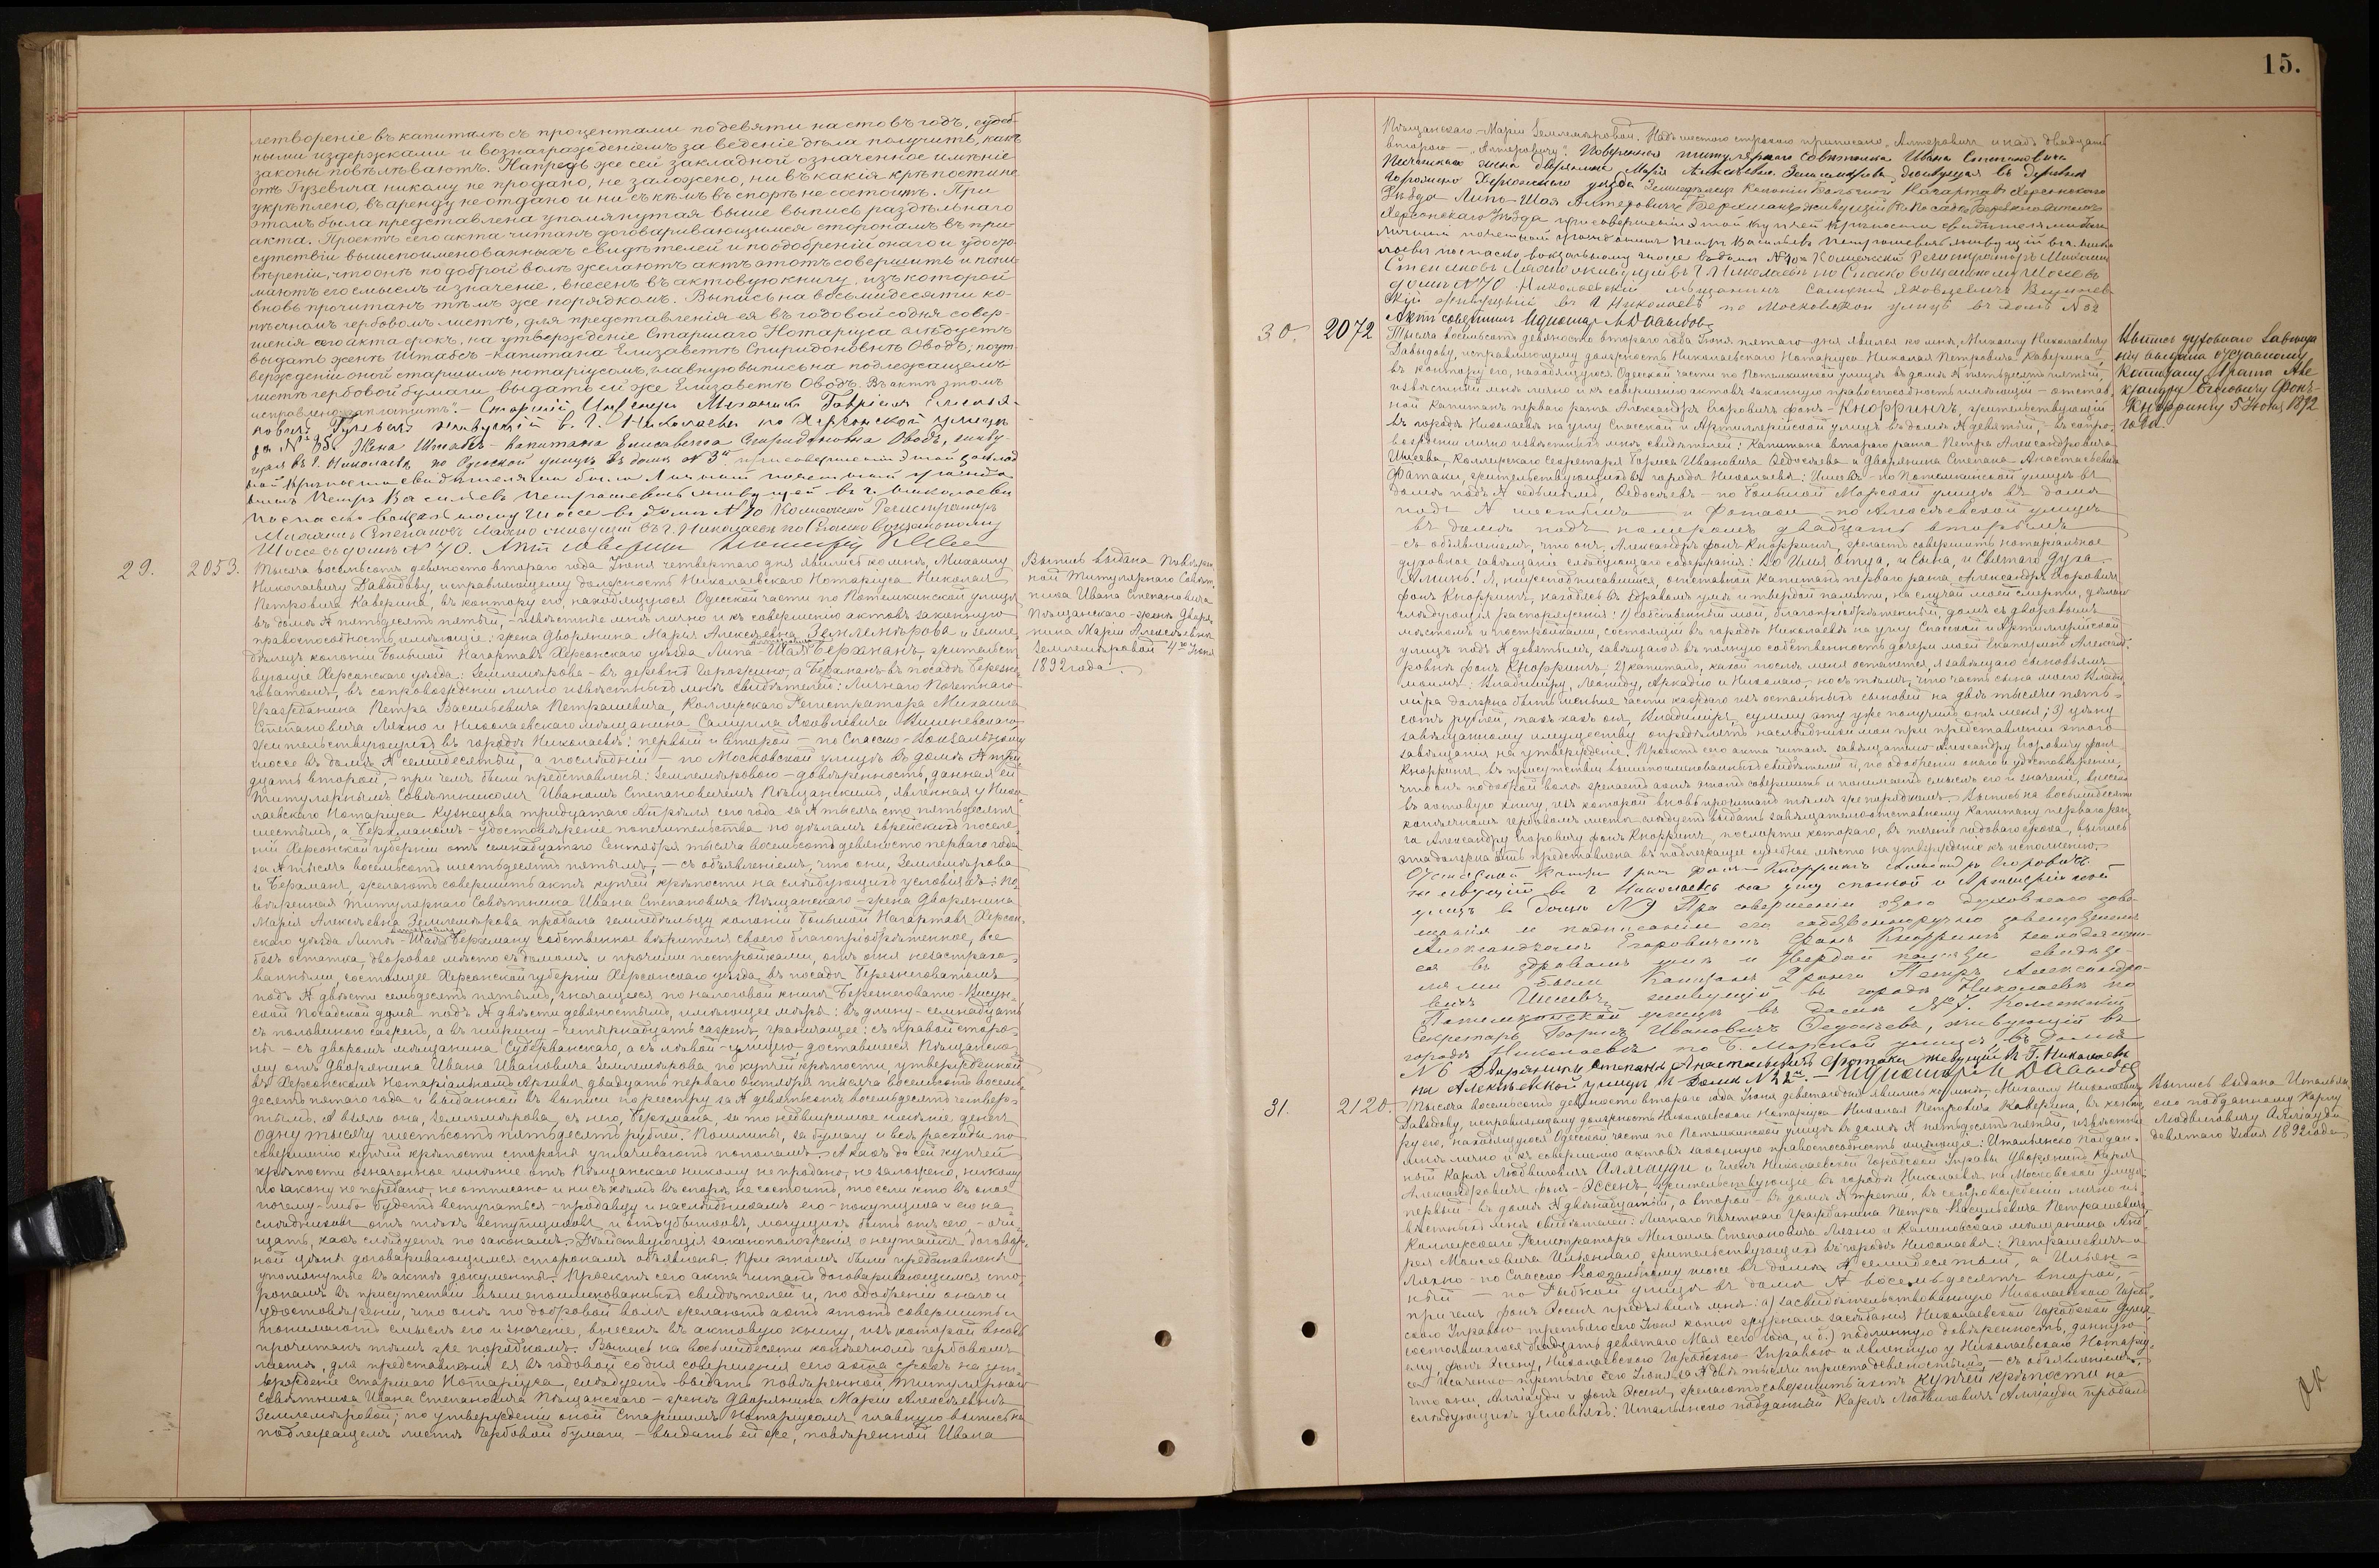 летвореніе въ капиталѣ съ процентами по девяти на сто въ годъ, судеб-
ными издержками и вознагражденіемъ за веденіе дѣла получить, какъ
законы повелѣваютъ. Напредъ же сей закладной означенное имѣніе
отъ Гузевича никому не продано, не заложено, ни въ какія крѣпости не
укрѣплено, въ аренду не отдано и ни съ кѣмъ въ спорѣ не состоитъ. При
этомъ была представлена упомянутая выше выпись раздѣльнаго
акта. Проектъ сего акта читанъ договаривающимся сторонамъ въ при-
сутствіи вышепоименованныхъ свидѣтелей и по одобреніи онаго и удосто-
вѣреніи, что онѣ по доброй волѣ желаютъ актъ этотъ совершить и пони-
маютъ его смыслъ и значеніе, внесенъ въ актовую книгу, изъ которой
вновь прочитанъ тѣмъ же порядкомъ. Выпись на восьмидесяти ко-
пѣечномъ гербовомъ листѣ, для представленія ея въ годовой со дня совер-
шенія сего акта срокъ, на утвержденіе Старшаго Нотаріуса слѣдуетъ
выдать женѣ Штабсъ-капитана Елизаветѣ Спиридоновнѣ Оводъ; по ут-
вержденіи оной старшимъ нотаріусомъ, главную выпись на подлежащемъ
листѣ гербовой бумаги выдать ей же Елизаветѣ Оводъ. Въ актѣ этомъ
Жена Штабсъ-капитана Елисавета Спиридоновна Оводъ, живу-
щая въ г. Николаевѣ по Одесской улицѣ въ домѣ № 3й при совершеніи этой заклад
ной крѣпости свидѣтелями были Личный почетный гражда
нинъ Петръ Васильевъ Петрашевичъ живущій въ г. Николаевѣ
по Спаско Вокзальному Шоссе въ домѣ № 70 Колежскій Регистраторъ
Михаилъ Степановъ Ляхно живущій въ г. Николаевѣ по Спаско Вокзальному
Шоссе въ домѣ № 70. Актъ совершилъ
29. 2053.
Тысяча восемьсотъ девяносто второго года Іюня четвертаго дня явились ко мнѣ, Михаилу
Николаевичу Давыдову, исправляющему должность Николаевскаго Нотаріуса Николая
Петровича Каверина, въ контору его, находящуюся Одесской части по Потемкинской улицѣ
въ домѣ № пятьдесятъ пятый, извѣстные мнѣ лично и къ совершенію актовъ законную
правоспособность имѣющіе: жена дворянина Марія Алексѣевна Землемѣрова и земле-
дѣлецъ колоніи Большой Нагартавъ Херсонскаго уѣзда Липа-Шая Берхманъ, жительст
вующіе Херсонскаго уѣзда: Землемѣрова - въ деревнѣ Горожино, а Берхманъ въ посадѣ Березне-
говатомъ, въ сопровожденіи лично извѣстныхъ мнѣ свидѣтелей: Личнаго Почетнаго
Гражданина Петра Васильевича Петрашевича, Коллежскаго Регистратора Михаила
Степановича Ляхно и Николаевскаго мѣщанина Самуила Яковлевича Вишневскаго
жительствующихъ въ городѣ Николаевѣ: первый и второй - по Спасско-Вокзальному
шоссе въ домѣ № семидесятый, а послѣдній - по Московской улицѣ въ домѣ № трид
дцать второй, - при чемъ были представлены: Землемѣровою - довѣренность, данная ей
Титулярнымъ Совѣтникомъ Иваномъ Степановичемъ Пѣщанскимъ, явленная у Нико-
лаевскаго Нотаріуса Кузнецова тридцатаго Апрѣля сего года за № тысяча сто пятьдесятъ
шестымъ, а Берхманомъ - удостовѣреніе попечительства по дѣламъ еврейскихъ поселе-
ній Херсонской губерніи отъ семнадцатаго Сентября тысяча восемьсотъ девяносто перваго года
за № тысяча восемьсотъ шестьдесятъ пятымъ, - съ объявленіемъ, что они, Землемѣрова
и Берхманъ, желаютъ совершить актъ купчей крѣпости на слѣдующихъ условіяхъ: По-
вѣренная Титулярнаго Совѣтника Ивана Степановича Пѣщанскаго - жена Дворянина
Марія Алексѣевна Землемѣрова продала земледѣльцу колоніи Большой Нагартавъ Херсон-
скаго уѣзда Липѣ-Шаѣ Берхману собственное вѣрителя своего благопріобрѣтенное, все
безъ остатка, дворовое мѣсто съ домомъ и прочими постройками, отъ огня незастрахо-
ванными, состоящее Херсонской губерніи Херсонскаго уѣзда, въ посадѣ Березнеговатомъ
подъ № двѣсти семьдесятъ пятымъ, значащееся по налоговой книгѣ Березнеговато-Висун-
ской Посадской думы подъ № двѣсти девяностымъ, имѣющее мѣры: въ длину - семнадцать
съ половиною сажень, а въ ширину - четырнадцать сажень, граничащее: съ правой сторо-
ны - съ дворомъ мѣщанина Судерванскаго, а съ лѣвой - улицею, доставшееся Пѣщанско-
му отъ Дворянина Ивана Ивановича Землемѣрова, по купчей крѣпости, утвержденной
въ Херсонскомъ Нотаріальномъ Архивѣ двадцать перваго Октября тысяча восемьсотъ восемь-
десятъ пятаго года и выданной въ выписи по реестру за № девятьсотъ восемьдесятъ четвер-
тымъ. А взяла она, Землемѣрова, съ него, Берхмана, за то недвижимое имѣніе денегъ
одну тысячу шестьсотъ пятьдесятъ рублей. Пошлины, за бумагу и всѣ расходы по
совершенію купчей крѣпости стороны уплачиваютъ пополамъ. А какъ до сей купчей
крѣпости означенное имѣніе отъ Пѣщанскаго никому не продано, не заложено, никому
по закону не передано, не отписано и ни съ кѣмъ въ спорѣ не состоитъ, то если кто въ оное
почему-либо будетъ вступаться - продавцу и наслѣдникамъ его - покупщика и его на-
слѣдниковъ отъ тѣхъ вступщиковъ и отъ убытковъ, могущихъ быть отъ сего, - очи-
щать, какъ слѣдуетъ по законамъ. Дѣйствующія законоположенія о неутайкѣ договор-
ной цѣны договаривающимся сторонамъ объявлены. При этомъ были представлены
упомянутые въ актѣ документы. Проектъ сего акта читанъ договаривающимся сто-
ронамъ въ присутствіи вышепоименованныхъ свидѣтелей и, по одобреніи онаго и
удостовѣреніи, что онѣ по доброй волѣ желаютъ актъ этотъ совершить и
понимаютъ смыслъ его и значеніе, внесенъ въ актовую книгу, изъ которой вновь
прочитанъ тѣмъ же порядкомъ. Выпись на восьмидесяти копѣечномъ гербовомъ
листѣ, для представленія ея въ годовой со дня совершенія сего акта срокъ на ут-
вержденіе Старшаго Нотаріуса, слѣдуетъ выдать повѣренной Титулярнаго
Совѣтника Ивана Степановича Пѣщанскаго - женѣ Дворянина Маріи Алексѣевнѣ
Землемѣровой; по утвержденіи оной Старшимъ Нотаріусомъ, главную выпись на
подлежащемъ листѣ гербовой бумаги - выдать ей же, повѣренной Ивана
Выпись выдана Повѣрен
ной Титулярнаго Совѣт-
ника Ивана Степановича
Пѣщанскаго - женѣ Дворя-
нина Маріи Алексѣевнѣ
Землемѣровой 4го Іюня
1892 года.
15.
Пѣщанскаго - Маріи Землемѣровой. Надъ шестою строкою приписано "Лимеровичъ" и надъ двадцать
Повѣренная титулярнаго совѣтника Ивана Степановича
Песчанскаго жена дворянина Марія Алексѣевна Землемѣрова, живущая въ деревнѣ
Горожино Херсонскаго уѣзда Земледѣлецъ Колоніи Большой Нагартавъ Херсонскаго
Херсонскаго Уѣзда при совершеніи этой купчей крѣпости свидѣтелями были
личный почетный гражданинъ Петръ Васильевъ Петрашевичъ живущій въ г. Нико
лаевѣ по спаско вокзальному шоссе въ домѣ № 70й Колежскій Регистраторъ Михаилъ
Степановъ Ляхно живущій въ г. Николаевѣ по Спаско Вокзальному Шоссе въ
домѣ № 70 Николаевскій мѣщанинъ Самуилъ Яковлевичъ Вишнев-
скій живущій въ г Николаевѣ по Московской улицѣ въ домѣ № 32
Актъ совершилъ И д нотар М Давыдовъ
30. 2072
Тысяча восемьсотъ девяносто второго года Іюня пятаго дня явился ко мнѣ, Михаилу Николаевичу
Давыдову, исправляющему должность Николаевскаго Нотаріуса Николая Петровича Каверина,
въ контору его, находящуюся Одесской части по Потемкинской улицѣ въ домѣ № пятьдесятъ пятый,
извѣстный мнѣ лично и къ совершенію актовъ законную правоспособность имѣющій - отстав-
ной Капитанъ перваго ранга Александръ Егоровичъ фонъ-Кноррингъ, жительствующій
въ городѣ Николаевѣ на углу Спасской и Артиллерійской улицъ въ домѣ № девятый, - въ сопро-
вожденіи лично извѣстныхъ мнѣ свидѣтелей: Капитана второго ранга Петра Александровича
Ишеева, Коллежскаго Секретаря Бориса Ивановича Ѳедосѣева и Дворянина Степана Анастасьевича
Фатаки, жительствующихъ въ городѣ Николаевѣ: Ишеевъ - по Потемкинской улицѣ въ
домѣ подъ № седьмымъ, Ѳедосѣевъ - по Большой Морской улицѣ въ домѣ
подъ № шестымъ и Фатаки - по Алексѣевской улицѣ
въ домѣ подъ номеромъ двадцать вторымъ
- съ объявленіемъ, что онъ, Александръ фонъ-Кноррингъ, желаетъ совершить нотаріальное
духовное завѣщаніе слѣдующаго содержанія: Во Имя Отца, и Сына, и Святаго Духа.
Аминь! Я, нижеподписавшійся, отставной капитанъ перваго ранга Александръ Егоровичъ
фонъ Кноррингъ, находясь въ здравомъ умѣ и твердой памяти, на случай моей смерти, дѣлаю
слѣдующія распоряженія: 1) собственный мой, благопріобрѣтенный, домъ съ дворовымъ
мѣстомъ и постройками, состоящій въ городѣ Николаевѣ на углу Спасской и Артиллерійской
улицъ подъ № девятымъ, завѣщаю въ полную собственность дочери моей Екатеринѣ Александ-
ровнѣ фонъ Кноррингъ; 2) капиталъ, какой послѣ меня останется, я завѣщаю сыновьямъ
моимъ: Владиміру, Леониду, Аркадію и Николаю, но съ тѣмъ, что часть сына моего Влади-
міра должна быть меньше части каждаго изъ остальныхъ сыновей на двѣ тысячи пять-
сотъ рублей, такъ какъ онъ, Владиміръ, сумму эту уже получилъ отъ меня; 3) цѣну
завѣщанному имуществу опредѣлятъ наслѣдники мои при представленіи этого
завѣщанія на утвержденіе. Проектъ сего акта читанъ завѣщателю Александру Егоровичу фонъ
Кноррингъ въ присутствіи вышепоименованныхъ свидѣтелей и, по одобреніи онаго и удостовѣреніи,
что онъ по доброй волѣ желаетъ актъ этотъ совершить и понимаетъ смыслъ его и значеніе, внесенъ
въ актовую книгу, изъ которой вновь прочитанъ тѣмъ же порядкомъ. Выпись на восьмидесяти
копѣечномъ гербовомъ листѣ слѣдуетъ выдать завѣщателю отставному Капитану перваго ран-
га Александру Егоровичу фонъ Кноррингъ, по смерти котораго, въ теченіе годоваго срока, выпись
эта должна быть представлена въ подлежащее судебное мѣсто на утвержденіе къ исполненію.
живущій въ г Николаевѣ на углу спаской и Артилерійской
улицъ въ домѣ № 9 При совершеніи этого духовнаго завѣ
щанія и подписаніи его собственноручно завѣщателемъ
Александромъ Егоровичемъ фонъ Кноррингъ находящим-
ся въ здравомъ умѣ и твердой памяти свидѣте-
лями были Капитанъ 2 ранга Петръ Александро-
вичъ Ишеевъ живущій въ городѣ Николаевѣ по
Потемкинской улицѣ въ домѣ № 7. Коллежскій
Секретарь Борисъ Ивановичъ Ѳедосѣевъ, живующій въ
городѣ Николаевѣ по Б. Морской улицѣ въ домѣ
№ 6 Дворянинъ Степанъ Анастасьевичъ Фатаки живущій въ Г. Николаевѣ
на Алексѣевской улицѣ въ домѣ № 22й. - И д нотар М Давыдовъ
Выпись духовнаго завѣща
нія выдана отставному
Капитану 1 ранга Але
ксандру Егоровичу фонъ
Кноррингу 5 Іюня 1892
года.
31. 2120.
Тысяча восемьсотъ девяносто второго года Іюня девятаго дня явились ко мнѣ, Михаилу Николаевичу
Давыдову, исправляющему должность Николаевскаго Нотаріуса Николая Петровича Каверина, въ конто-
ру его, находящуюся Одесской части по Потемкинской улицѣ въ домѣ № пятьдесятъ пятый, извѣстные
мнѣ лично и къ совершенію актовъ законную правоспособность имѣющіе: Итальянско Поддан-
ный Карлъ Людвиговичъ Аллауди и Членъ Николаевской Городской Управы Дворянинъ Карлъ
Александровичъ фонъ-Эссенъ, жительствующіе въ городѣ Николаевѣ, на Московской улицѣ:
первый - въ домѣ № двѣнадцатый, а второй - въ домѣ № третій, въ сопровожденіи лично из-
вѣстныхъ мнѣ свидѣтелей: Личнаго Почетнаго Гражданина Петра Васильевича Петрашевича,
Коллежскаго Регистратора Михаила Степановича Ляхно и Калиновскаго мѣщанина Анд-
рея Моисеевича Ильяннаго, жительствующихъ въ городѣ Николаевѣ: Петрашевичъ и
Ляхно - по Спасско Вокзальному шоссе въ домѣ № семидесятый, а Ильян-
ный - по Рыбной улицѣ въ домѣ № восемьдесятъ второй, -
при чемъ фонъ Эссенъ предъявилъ мнѣ: а) засвидѣтельствованную Николаевскою Город-
скою Управою третьяго сего Іюня копію журнала засѣданія Николаевской Городской Думы,
состоявшагося двадцать девятаго Мая сего года, и б.) подлинную довѣренность, данную
ему, фонъ Эссену, Николаевскою Городскою Управою и явленную у Николаевскаго Нотаріу-
са Исаченко третьяго сего Іюня за № двѣ тысячи триста девяностымъ, - съ объявленіемъ,
что они, Аллауди и фонъ Эссенъ, желаютъ совершить актъ купчей крѣпости на
слѣдующихъ условіяхъ: Итальянско подданный Карлъ Людвиговичъ Аллауди продалъ
Выпись выдана Итальян
ско подданному Карлу
Людвиговичу Аллауди
девятаго Іюня 1892 года